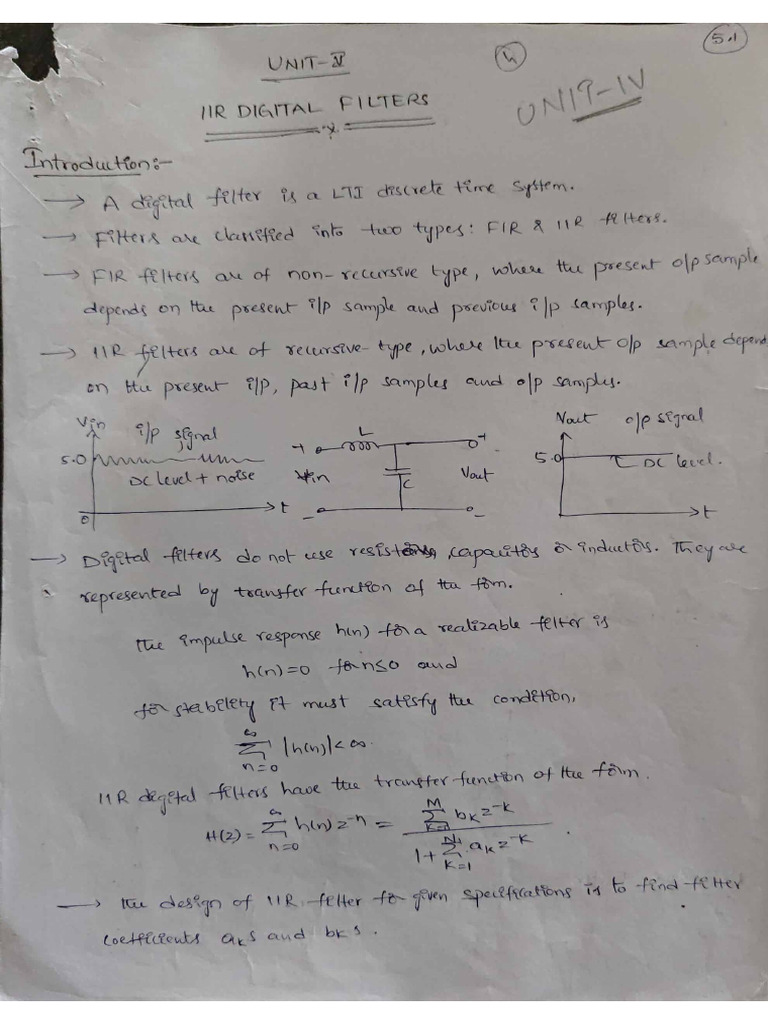 5.1
UNIT-V
4
IIR DIGITAL FILTERS
UNIT-IV
Introduction:-
→ A digital filter is a LTI discrete time system.
→ Filters are classified into two types: FIR & IIR filters.
→ FIR filters are of non-recursive type, where the present o/p sample
depends on the present i/p sample and previous i/p samples.
→ IIR filters are of recursive type, where the present o/p sample depend
on the present i/p, past i/p samples and o/p samples.
Vin i/p signal
5.0
DC level + noise
0 t
L
+ +
Vin C Vout
- -
Vout o/p signal
5.0 DC level.
t
→ Digital filters do not use resistors, capacitors or inductors. They are
represented by transfer function of the form.
The impulse response h(n) for a realizable filter is
h(n)=0 for n≤0 and
for stability it must satisfy the condition,
∞
∑ |h(n)|<∞.
n=0
IIR digital filters have the transfer function of the form.
H(z) = ∑_{n=0}^{∞} h(n)z^{-n} = ∑_{k=}^{M} b_k z^{-k} / 1+∑_{k=1}^{N} a_k z^{-k} .
→ The design of IIR filter for given specifications is to find filter
coefficients aks and bks.